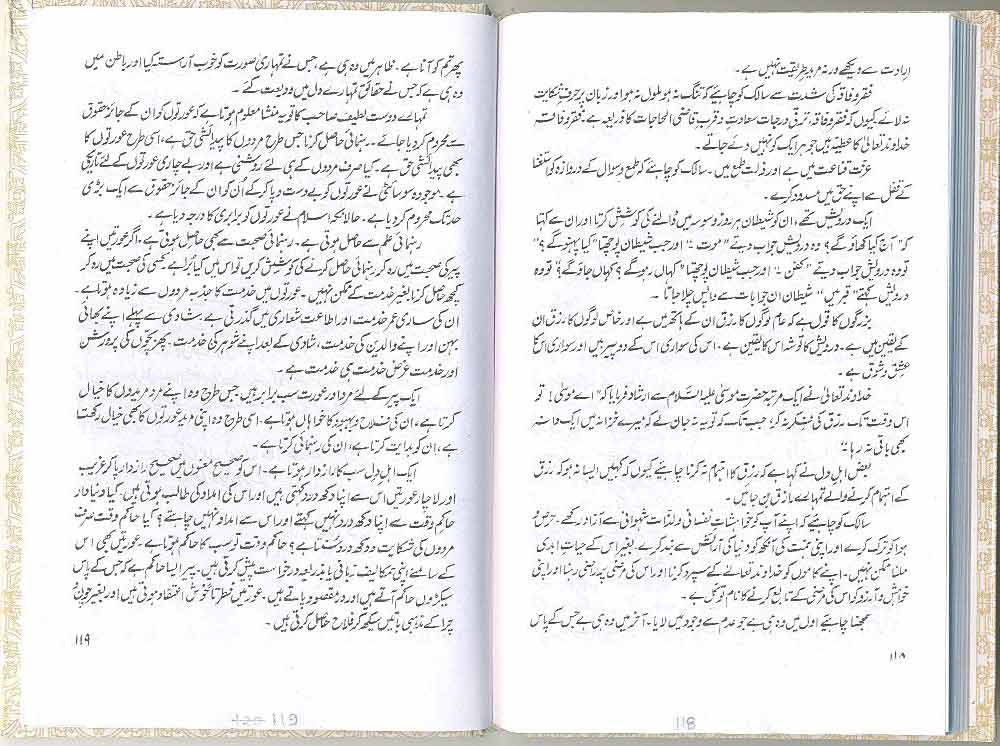 اِرادت سے دیکھے ورنہ مریدِ طریقت نہیں ہے۔
فقر و فاقہ کی شدت سے سالک کو چاہیئے کہ تنگ نہ ہو ملول نہ ہو اور زبان پر حرفِ شکایت
نہ لائے کیوں کہ فقر و فاقہ، ترقی درجات سعادت و قربِ قاضی الحاجات کا ذریعہ ہے۔ فقر و فاقہ
خداوند تعالیٰ کا عطیہ ہیں جو ہر ایک کو نہیں دئے جاتے۔
عزت قناعت میں ہے اور ذلت طمع میں۔ سالک کو چاہیئے کہ طمع و سوال کے دروازہ کو استغنا
کے قفل سے اپنے حق میں مسدود کرے۔
ایک درویش تھے، ان کو شیطان ہر روز وسوسہ میں ڈالنے کی کوشش کرتا اور ان سے کہتا
کہ "آج کیا کھاؤ گے؟ وہ درویش جواب دیتے "موت" اور جب شیطان پوچھتا "کیا پہنو گے؟"
تو وہ درویش جواب دیتے "کفن" اور جب شیطان پوچھتا "کہاں رہو گے؟ کہاں جاؤ گے؟" تو وہ
درویش کہتے "قبر میں" شیطان ان جوابات سے واپس چلا جاتا۔
بزرگوں کا قول ہے کہ عام لوگوں کا رزق ان کے ہاتھ میں ہے اور خاص لوگوں کا رزق ان
کے یقین میں ہے۔ درویش کا توشہ اس کا یقین ہے۔ اس کی سواری اس کے دو پیر ہیں اور سواری اس کا
عشق و شوق ہے۔
خداوند تعالیٰ نے ایک مرتبہ حضرت موسیٰ علیہ السّلام سے ارشاد فرمایا کہ "اے موسیٰ! تو
اس وقت تک رزق کی فکر نہ کر، جب تک کہ تو یہ نہ جان لے کہ میرے خزانہ میں ایک دانہ
بھی باقی نہ رہا۔"
بعض اہلِ دل نے کہا ہے کہ رزق کا اہتمام نہ کرنا چاہیئے کیوں کہ کہیں ایسا نہ ہو کہ رزق
کے اہتمام کرنے والے تمہارے رازق بن جائیں۔
سالک کو چاہیئے کہ اپنے آپ کو خواہشاتِ نفسانی و لذات شہوانی سے آزاد رکھے۔ حرص و
ہوا کو ترک کرے اور اپنی ہمت کی آنکھ کو دنیا کی آرائش سے بند کرے۔ بغیر اس کے حیاتِ ابدی
ملنا ممکن نہیں۔ اپنے کاموں کو خداوند تعالےٰ کے سپرد کرنا اور اس کی مرضی پر راضی رہنا اور اپنی
خواہش و آرزو کو اس کی مرضی کے تابع کرنے کا نام توکل ہے۔
سمجھنا چاہیئے اول میں وہ ہی ہے جو عدم سے وجود میں لایا۔ آخر میں وہ ہی ہے جس کے پاس
۱۱۸
118
پھر تم کو آنا ہے۔ ظاہر میں وہ ہی ہے، جس نے تمہاری صورت کو خوب آراستہ کیا اور باطن میں
وہ ہی ہے کہ جس نے حقائق تمہارے دل میں ودیعت کئے۔
تمہارے دوست لطیف صاحب کا تو یہ منشا معلوم ہوتا ہے کہ عورتوں کو ان کے جائز حقوق
سے محروم کر دیا جائے۔ رہنمائی حاصل کرنا جس طرح مردوں کا پیدائشی حق ہے، اسی طرح عورتوں کا
بھی پیدائشی حق ہے۔ کیا صرف مردوں کے ہی لئے روشنی ہے اور بے چاری عورتوں کے لئے تاریکی
ہے۔ موجودہ سوسائٹی نے عورتوں کو بے دست و پا کر کے اُن کو ان کے جائز حقوق سے ایک بڑی
حد تک محروم کر دیا ہے۔ حالانکہ اسلام نے عورتوں کو برابری کا درجہ دیا ہے۔
رہنمائی علم سے حاصل ہوتی ہے۔ رہنمائی صحبت سے بھی حاصل ہوتی ہے، اگر عورتیں اپنے
پیر کی صحبت میں رہ کر رہنمائی حاصل کرنے کی کوشش کریں تو اس میں کیا بُرا ہے کسی کی صحبت میں رہ کر
کچھ حاصل کرنا بغیر خدمت کے ممکن نہیں۔ عورتوں میں خدمت کا جذبہ مردوں سے زیادہ ہوتا ہے۔
ان کی ساری عمر خدمت اور اطاعت شعاری میں گذرتی ہے۔ شادی سے پہلے اپنے بھائی
بہن اور اپنے والدین کی خدمت، شادی کے بعد اپنے شوہر کی خدمت۔ پھر بچوں کی پرورش
اور خدمت غرض خدمت ہی خدمت ہے۔
ایک پیر کے لئے مرد اور عورت سب برابر ہیں جس طرح وہ اپنے مرد مریدوں کا خیال
کرتا ہے، ان کی فلاح و بہبود کا خواہاں ہوتا ہے۔ اسی طرح وہ اپنی مرید عورتوں کا بھی خیال رکھتا
ہے، ان کو ہدایت کرتا ہے، ان کی رہنمائی کرتا ہے۔
ایک اہلِ دل سب کا رازدار ہوتا ہے۔ اس کو صحیح معنوں میں صحیح رازدار پا کر غریب
اور لاچار عورتیں اس سے اپنا دکھ درد کہتی ہیں اور اس کی امداد کی طالب ہوتی ہیں۔ کیا دنیا دار
حاکم وقت سے اپنا دکھ درد نہیں کہتے اور اس سے امداد نہیں چاہتے؟ کیا حاکم وقت صرف
مردوں کی شکایت و دکھ درد سنتا ہے؟ حاکم وقت تو سب کا حاکم ہوتا ہے۔ عورتیں بھی اس
کے سامنے اپنی تکالیف زبانی یا بذریعہ درخواست پیش کرتی ہیں۔ پیر ایسا حاکم ہے کہ جس کے پاس
سیکڑوں حاکم آتے ہیں اور درِ مقصود پاتے ہیں۔ عورتیں فطرتاً خوش اعتقاد ہوتی ہیں اور بغیر چون و
چرا کے مذہبی باتیں سیکھ کر فلاح حاصل کرتی ہیں۔
۱۱۹
119